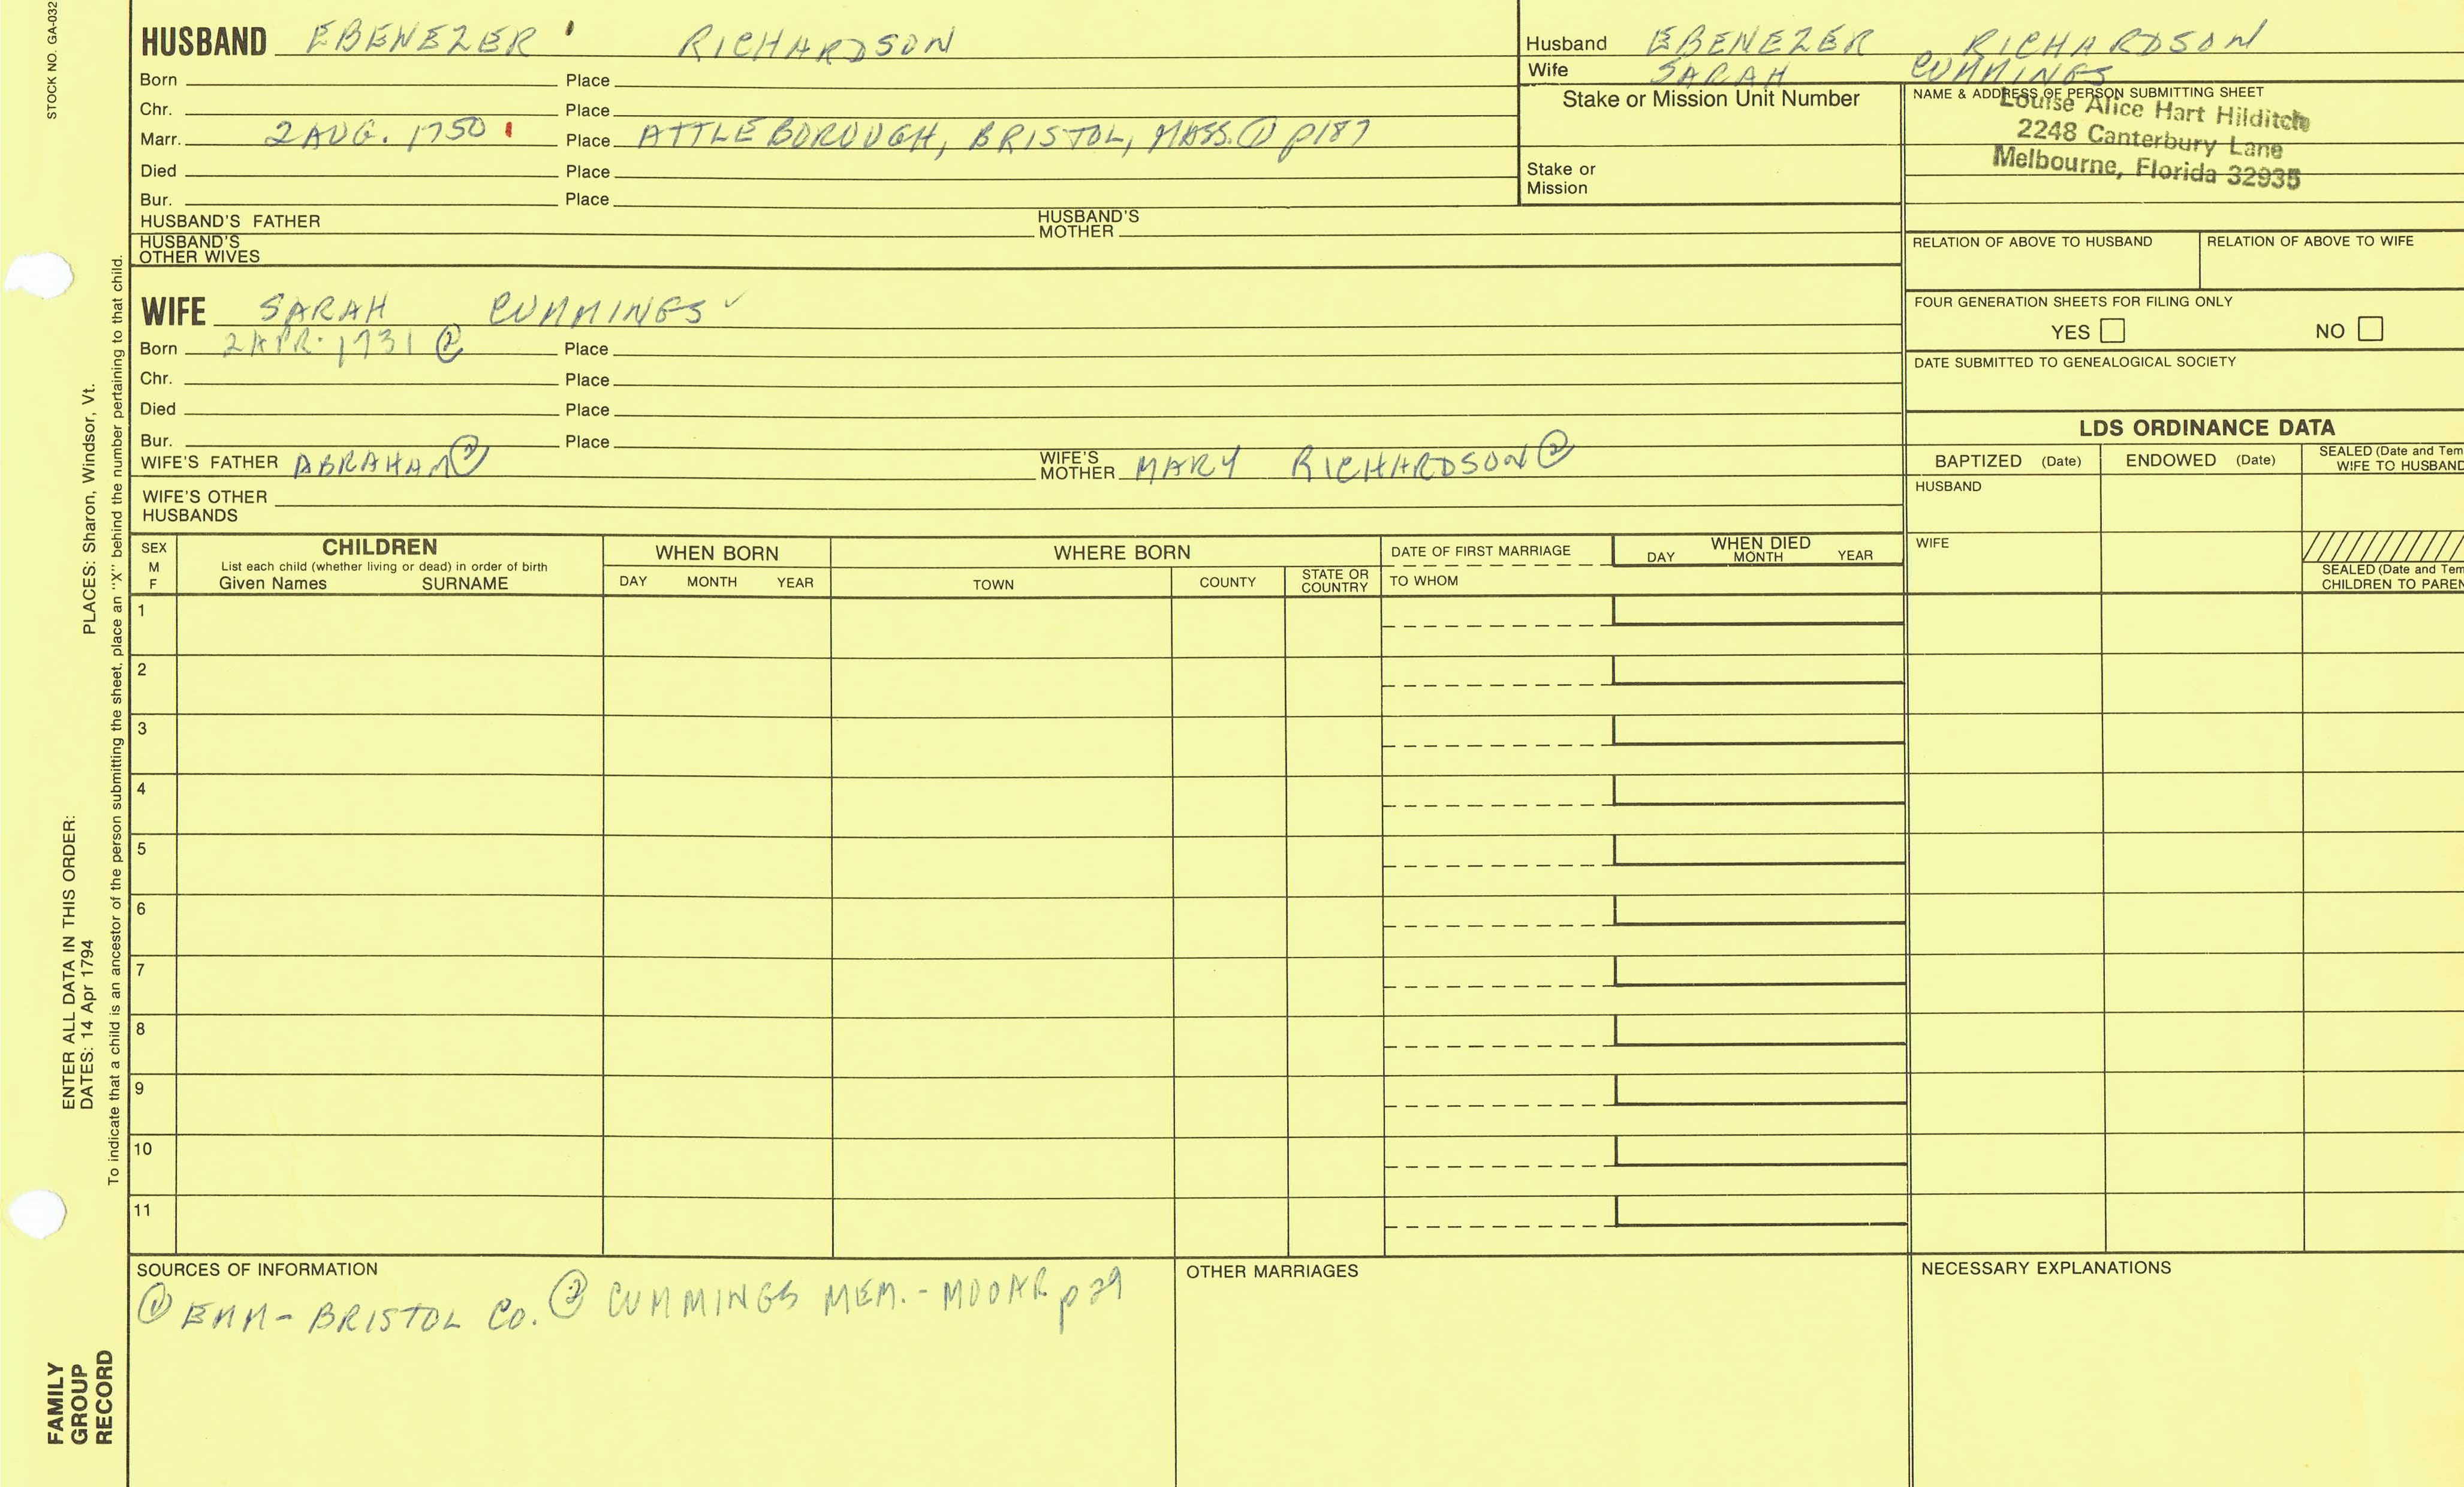 STOCK NO. GA-032
HUSBAND EBENEZER RICHARDSON
Born Place
Chr. Place
Marr. 2 AUG. 1750 Place ATTLEBOROUGH, BRISTOL, MASS. ① p187
Died Place
Bur. Place
HUSBAND'S FATHER HUSBAND'S MOTHER
HUSBAND'S OTHER WIVES
Husband EBENEZER RICHARDSON
Wife SARAH CUMMINGS
Stake or Mission Unit Number
Stake or Mission
NAME & ADDRESS OF PERSON SUBMITTING SHEET
Louise Alice Hart Hilditch
2248 Canterbury Lane
Melbourne, Florida 32935
RELATION OF ABOVE TO HUSBAND RELATION OF ABOVE TO WIFE
FOUR GENERATION SHEETS FOR FILING ONLY
YES NO
DATE SUBMITTED TO GENEALOGICAL SOCIETY
WIFE SARAH CUMMINGS
Born 2 APR. 1731 ② Place
Chr. Place
Died Place
Bur. Place
WIFE'S FATHER ABRAHAM ② WIFE'S MOTHER MARY RICHARDSON ②
WIFE'S OTHER HUSBANDS
LDS ORDINANCE DATA
BAPTIZED (Date) ENDOWED (Date) SEALED (Date and Tem
WIFE TO HUSBAND
HUSBAND
WIFE
SEALED (Date and Tem
CHILDREN TO PAREN
SEX
M
F
CHILDREN
List each child (whether living or dead) in order of birth
Given Names SURNAME
WHEN BORN
DAY MONTH YEAR
WHERE BORN
TOWN COUNTY STATE OR COUNTRY
DATE OF FIRST MARRIAGE
TO WHOM
WHEN DIED
DAY MONTH YEAR
1
2
3
4
5
6
7
8
9
10
11
SOURCES OF INFORMATION
① EMM - BRISTOL CO. ② CUMMINGS MEM. - MOOAR p 29
OTHER MARRIAGES
NECESSARY EXPLANATIONS
PLACES: Sharon, Windsor, Vt.
ENTER ALL DATA IN THIS ORDER:
DATES: 14 Apr 1794
To indicate that a child is an ancestor of the person submitting the sheet, place an "X" behind the number pertaining to that child.
FAMILY
GROUP
RECORD